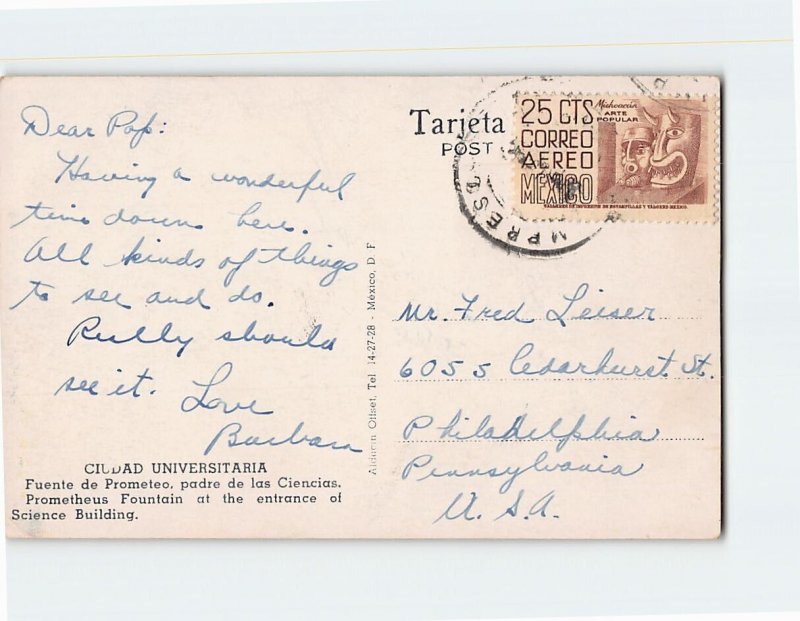 Dear Pop:
Having a wonderful
time down here.
All kinds of things
to see and do.
Rully should
see it. Love
Barbara
CIUDAD UNIVERSITARIA
Fuente de Prometeo, padre de las Ciencias.
Prometheus Fountain at the entrance of
Science Building.
Offset, Tel 14-27-28 - México, D F
Tarjeta
POST
25 CTS
CORREO
AEREO
MEXICO
Michoacán
ARTE
POPULAR
TALLERES DE IMPRESION DE ESTAMPILLAS Y VALORES-MEXICO.
MPRESO
Mr. Fred Leiser
6055 Cedarhurst St.
Philadelphia
Pennsylvania
U. S. A.